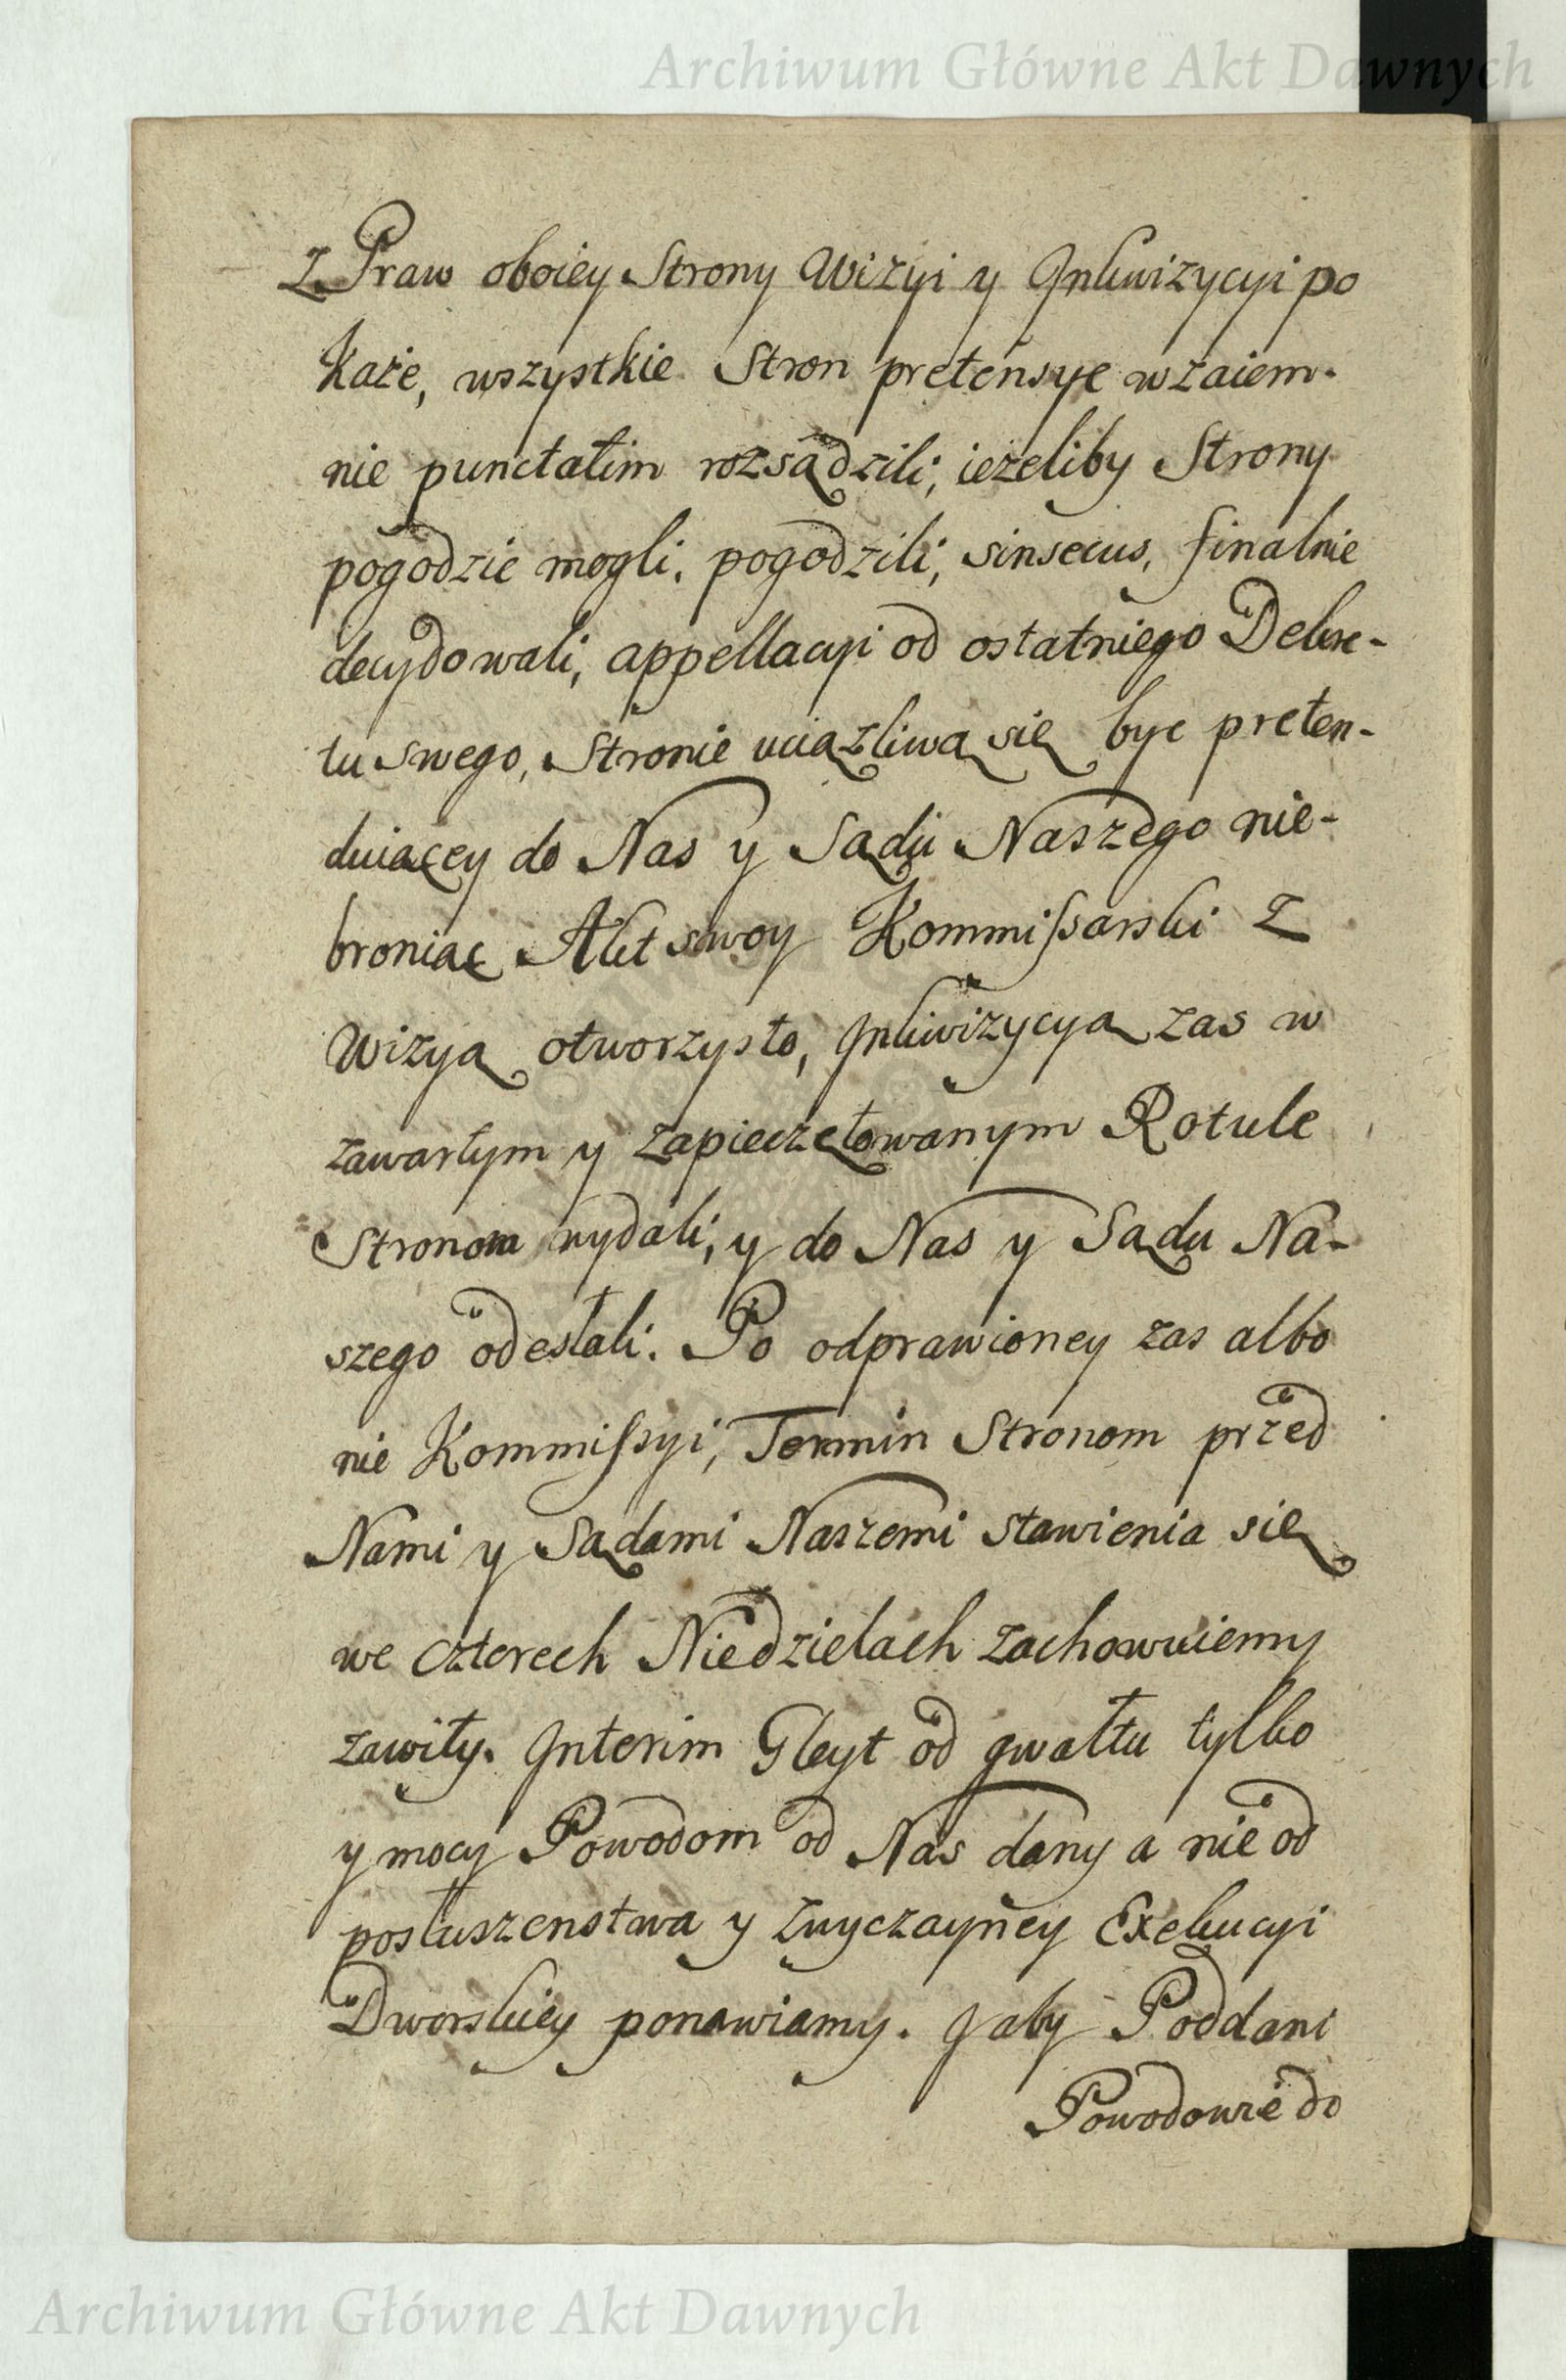 Archiwum Główne Akt Dawnych
z Praw oboiey Strony Wizyi y Jnkwizycyi po
każe, wszystkie Stron pretensye wzaiem-
nie punctatim rozsądzili, ieżeliby Strony
pogodzic mogli, pogodzili, sinsecus, finalnie
decydowali, appellacyi od ostatniego Dekre-
tu swego, Stronie uciązliwą się byc preten-
duiącey do Nas y Sądu Naszego nie-
broniąc Akt swoy Kommissarski z
Wizyą otworzysto, Jnkwizycyą zas w
zawartym y zapieczętowanym Rotule
Stronom wydali, y do Nas y Sądu Na-
szego odesłali. Po odprawioney zas albo
nie Kommissyi, Termin Stronom przed
Nami y Sądami Naszemi stawienia się
we czterech Niedzielach zachowuiemy
zawity. Jnterim Gleyt od gwałtu tylko
y mocy Powodom od Nas dany a nie od
posłuszenstwa y zwyczayney Exekucyi
Dworskiey ponawiamy. Jaby Poddani
Powodowie do
Archiwum Główne Akt Dawnych